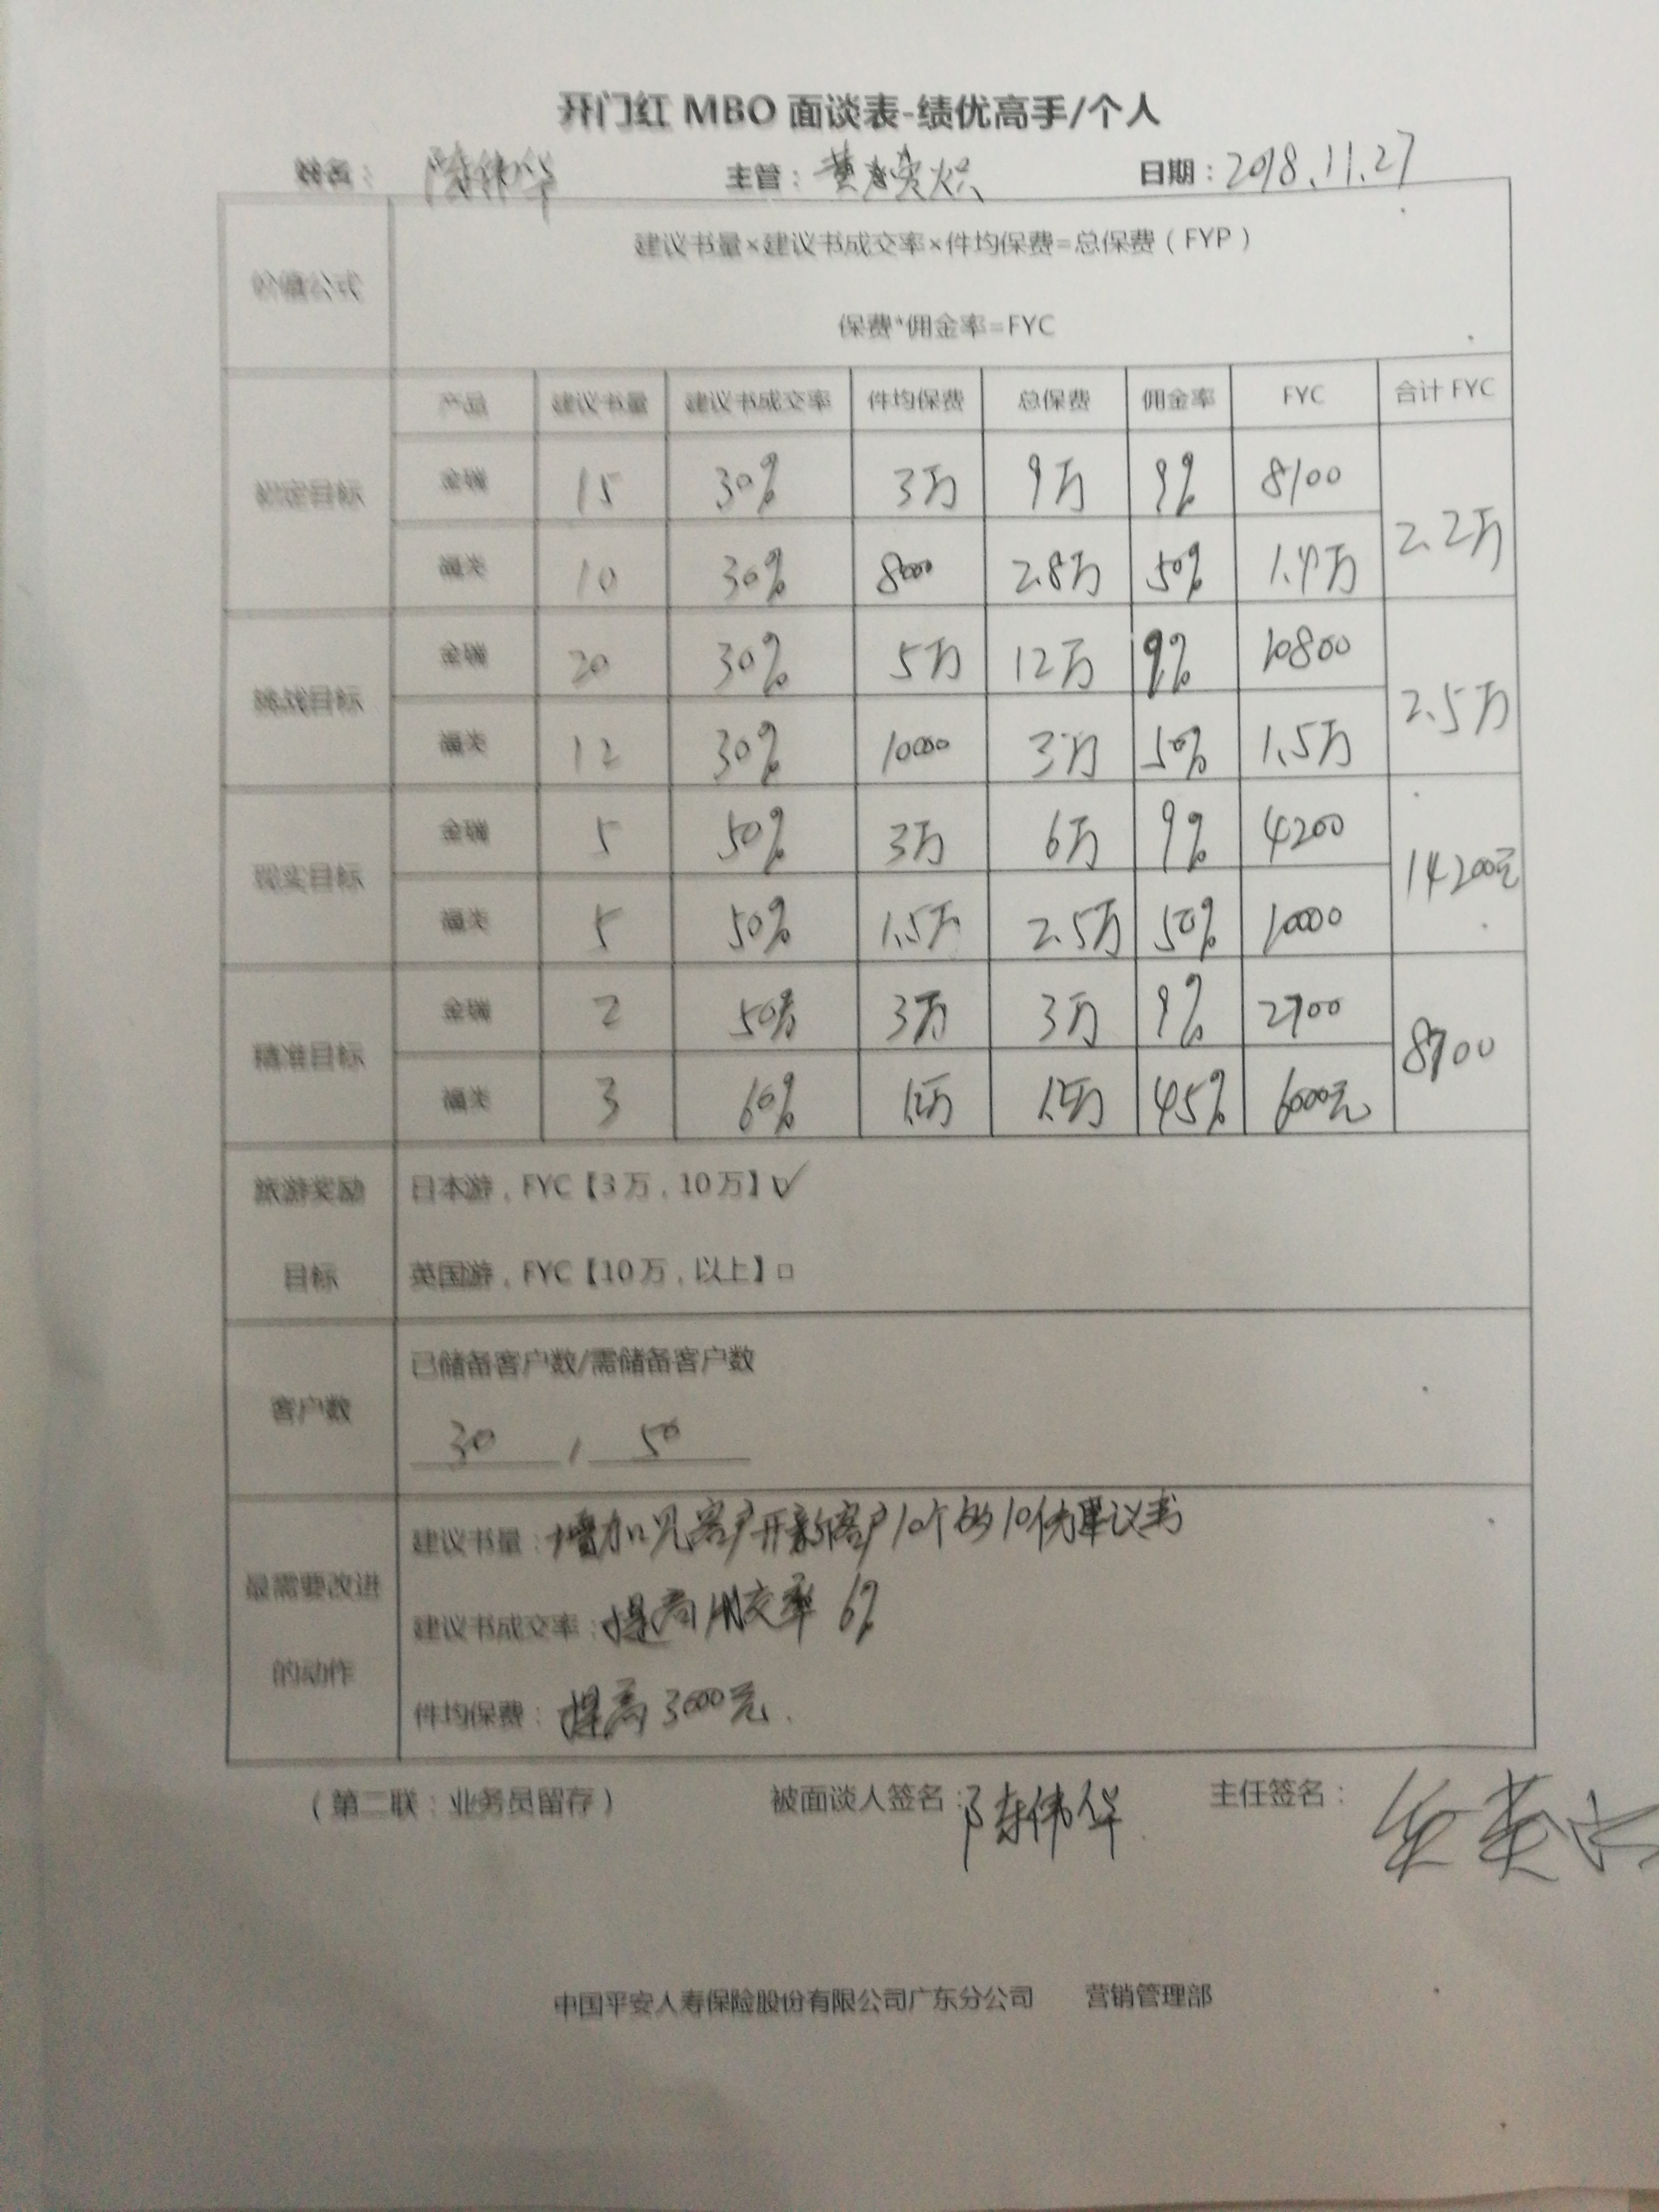 开门红 MBO 面谈表-绩优高手/个人
姓名： 陈伟华 主管：黄 日期：2018.11.27
价值公式
建议书量×建议书成交率×件均保费=总保费（FYP）
保费*佣金率=FYC
产品 建议书量 建议书成交率 件均保费 总保费 佣金率 FYC 合计 FYC
目标
金瑞 15 30% 3万 9万 9% 8100
2.2万
福夫 10 30% 8000 2.8万 50% 1.4万
挑战目标
金瑞 20 30% 5万 12万 9% 10800
2.5万
福夫 12 30% 10000 3万 50% 1.5万
现实目标
金瑞 5 50% 3万 6万 9% 4200
14200元
福夫 5 50% 1.5万 2.5万 50% 10000
精准目标
金瑞 2 50% 3万 3万 9% 2700
8700
福夫 3 60% 45% 6000元
旅游奖励
目标
日本游，FYC【3万，10万】✓
英国游，FYC【10万，以上】□
客户数
已储备客户数/需储备客户数
30 / 50
最需要改进
的动作
建议书量：增加见客户开新客户10个的10份建议书
建议书成交率：提高成交率 6%
件均保费：提高3000元.
（第二联：业务员留存） 被面谈人签名：陈伟华 主任签名：
中国平安人寿保险股份有限公司广东分公司 营销管理部